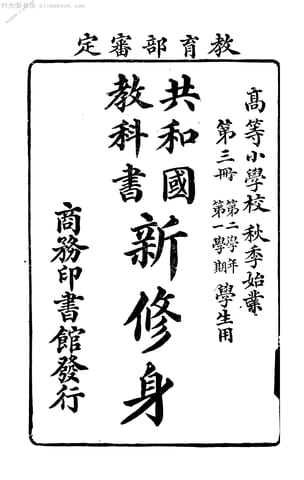 教育部審定
高等小學校 秋季始業
第三冊 第二學年 第一學期 學生用
共和國
教科書
新修身
商務印書館發行